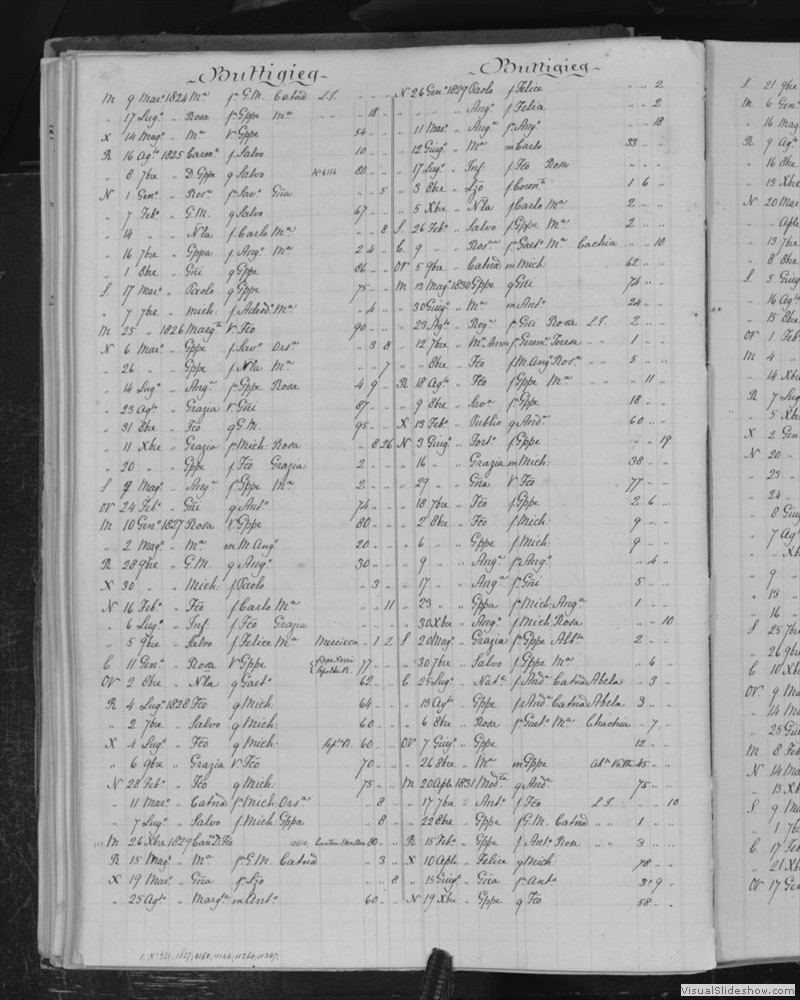 Buttigieg
M 9 Mar.º 1824 Mª fª G.M. Catnd L.I. " " "
" 17 Lug.º " Rosa fª Gppe Mª " " 18 "
X 14 Mag.º " Mª V. Gppe 54 " "
R 16 Ag.to 1825 Carmª f. Salvo 10 " "
" 8 7bre " D. Gppe q Salvo 80 " "
N 1 Gen.º " Rosª fª Savª Gña " " 5
" 7 Feb.º " G.M. q Salvo 67 " "
" 14 " " Nla f. Carlo Mª " " 8
" 16 7bre " Gppa f. Ang.º Mª 2 4 "
" 1 8bre " Gñi q Gppe 86 " "
S 17 Mar.º " Paolo q Gppe 75 " "
" 7 7bre " Mich. Mª " 4 "
M 25 " 1826 Margta V. Fco 90 " "
N 6 Mar.º " Gppe f. Savª Orsª " 3 8
" 26 " " Gppe f. Nla Mª " " 7
" 14 Lug.º " Angª fª Gppe Rosa 4 9 "
" 23 Ag.to " Grazia V. Gñi 87 " "
" 31 8bre " Fco q G.M. 95 " "
" 11 Xbre " Grazia fª Mich. Rosa " 8 26
" 20 " " Gppe f. Fco Grazia 2 " "
S 4 Mag.º " Angª fª Gppe Mª 2 " "
OV 24 Feb.º " Gñi q Ant.º 74 " "
M 10 Gen.º 1827 Rosa V. Gppe 80 " "
" 2 Mag.º " Mª m M. Ang.º 20 " "
R 28 9bre " G.M. q Ang.º 30 " "
X 30 " " Mich. f. Paolo " 3 "
N 16 Feb.º " Fco f. Carlo Mª " " 11
" 6 Lug.º " Inf. f. Fco Grazia " " "
" 5 9bre " Salvo f. Felice Mª Mercieca " 1 2
C 11 Gen.º " Rosa V. Gppe 77 " "
OV 2 8bre " Nla q Gaet.º 62 " "
R 4 Lug.º 1828 Fco q Mich. 64 " "
" 2 7bre " Salvo q Mich. 60 " "
X 4 Lug.º " Fco q Mich. 60 " "
" 6 9bre " Grazia V. Fco 70 " "
N 28 Feb.º " Fco q Mich. 75 " "
" 11 Mar.º " Catnd fª Mich. Orsª " 8 "
" 7 Lug.º " Salvo f. Mich. Gppa " 8 "
M 26 Xbre 1829 Can.º D. Fco 80 " "
R 15 Mag.º " Mª fª G.M. Catnd " 3 "
X 19 Mar.º " Gña fª Ljo " " 8
" 25 Ag.to " Margta m Ant.º 60 " "
Buttigieg
N 26 Gen.º 1829 Paolo f. Felice " " 2
" " " " Ang.º f. Felice " " 2
" 11 Mar.º " Angª fª Ang.º " " 18
" 12 Giug.º " Mª m Carlo 33 " "
" 17 Lug.º " Inf. f. Fco Rosa " " "
" 3 8bre " Ljo 1 6 "
" 5 Xbre " Nla f. Carlo Mª 2 " "
S 26 Feb.º " Salvo f. Gppe Mª 2 " "
C 9 " " Rosª fª Gaet.º Mª Cachia " " 10
OV 5 9bre " Catnd m Mich. 62 " "
M 13 Mag.º 1830 Gppe q Gñi 74 " "
" 30 Giug.º " Mª m Ant.º 24 " "
" 23 Ag.to " Regª fª Gñi Rosa L.I. 2 " "
" 12 7bre " fª Gerom.º Teresa " " 1 " "
" " 8bre " Fco f. M. Ang.º Rosª " " 5 " "
R 18 Ag.to " Fco f. Gppe Mª " " " 11 "
" 9 8bre " Savª fª Gppe 18 " "
X 13 Feb.º " Publio q And.ª 60 " "
N 3 Giug.º " Fort.º f. Gppe " " 19
" 16 " " Grazia m Mich. 38 " "
" 29 " " Gña V. Fco 77 " "
" 18 7bre " Fco f. Gppe 2 6 "
" 2 8bre " Fco f. Mich. 9 " "
" 6 " " Gppe f. Mich. 9 " "
" 9 " " Angª fª Ang.º " 4 "
" 17 " " Angª fª Gñi 5 " "
" 23 " " Gppa fª Mich. Angª 1 " "
" 30 Xbre " Ang.º f. Mich. Rosa " " 10
S 20 Mag.º " Grazia fª Gppe 2 " "
" 30 7bre " Salvo f. Gppe Mª " 6 "
C 25 Lug.º " Natª f. And.ª Catnd Abela " 3 "
" 13 Ag.to " Gppe f. And.ª Catnd Abela 3 " "
" 6 8bre " Rosa fª Gaet.º Mª Chachia " 7 "
OV 7 Giug.º " Gppe 12 " "
" 26 8bre " Mª m Gppe 45 " "
M 20 Aple 1831 q And.ª 75 " "
" 17 7bre " Ant.º f. Fco L.I. " " 10
" 22 8bre " Gppe f. G.M. Catnd " " 1 " "
R 15 Feb.º " Gppe f. Ant.º Rosa " " 3 " "
X 10 Aple " Felice q Mich. 78 " "
" 15 Giug.º " Gña fª Ant.º 3 9 "
N 19 Xbre " Gppe q Fco 58 " "
S 21 9bre
M 6 Gen
" 16 Mag
R 9 Ag
" 16 8bre
" 13 Xbre
N 20 Mar
" 13 7bre
" 8 8bre
S 5 Giug
" 16 Ag
" 15 8bre
OV 1 Feb
M 4 "
" 14 Xbre
R 7 Lug
" 5 Xbre
X 2 Gen
N 20 "
" 23 "
" 24 "
" 8 Giug
" 7 Ag
" " Xb
" 9 "
" 13 "
" 16 "
S 25 7bre
" 26 9bre
C 10 Xb
OV 9 Ma
" 14 Ma
" 25 Giu
M 8 Feb
N 14 Ma
" 15 Xb
S 9 Ma
" 1 7b
C 17 Feb
" 21 Xb
OV 17 Gen
VisualSlideshow.com